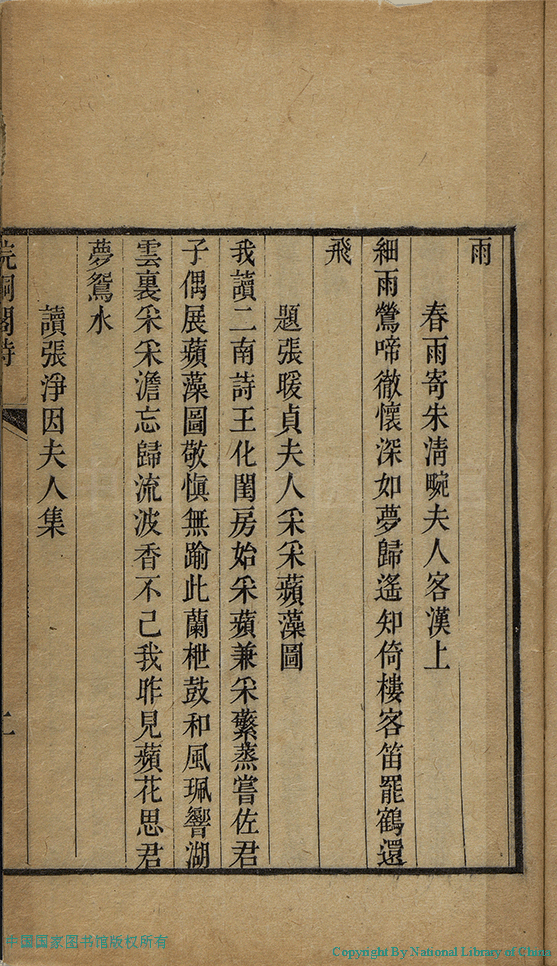 雨
春雨寄朱清畹夫人客漢上
細雨鶯啼徹懷深如夢歸遙知倚樓客笛罷鶴還
飛
題張暖貞夫人采采蘋藻圖
我讀二南詩王化閨房始采蘋兼采蘩蒸嘗佐君
子偶展蘋藻圖敬愼無踰此蘭枻鼓和風珮響湖
雲裏采采澹忘歸流波香不已我昨見蘋花思君
夢鴛水
讀張淨因夫人集
桐閣詩
上
中国国家图书馆版权所有
Copyright By National Library of China